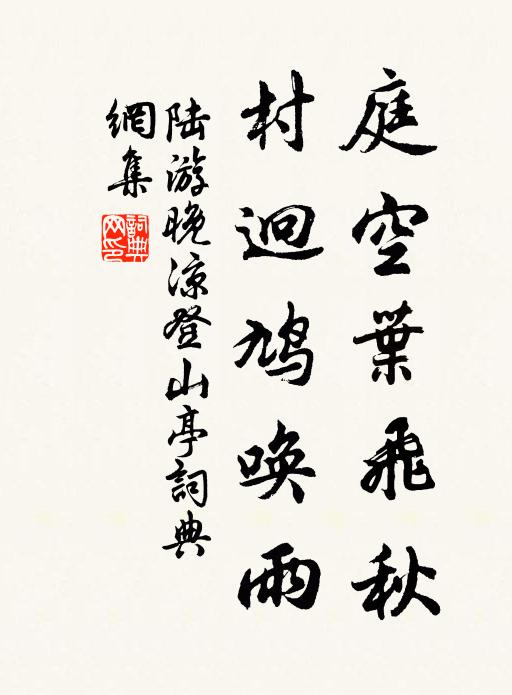 庭空葉飛秋
村迥鳩喚雨
陆游晚涼登山亭詞典
網集
詞典網印